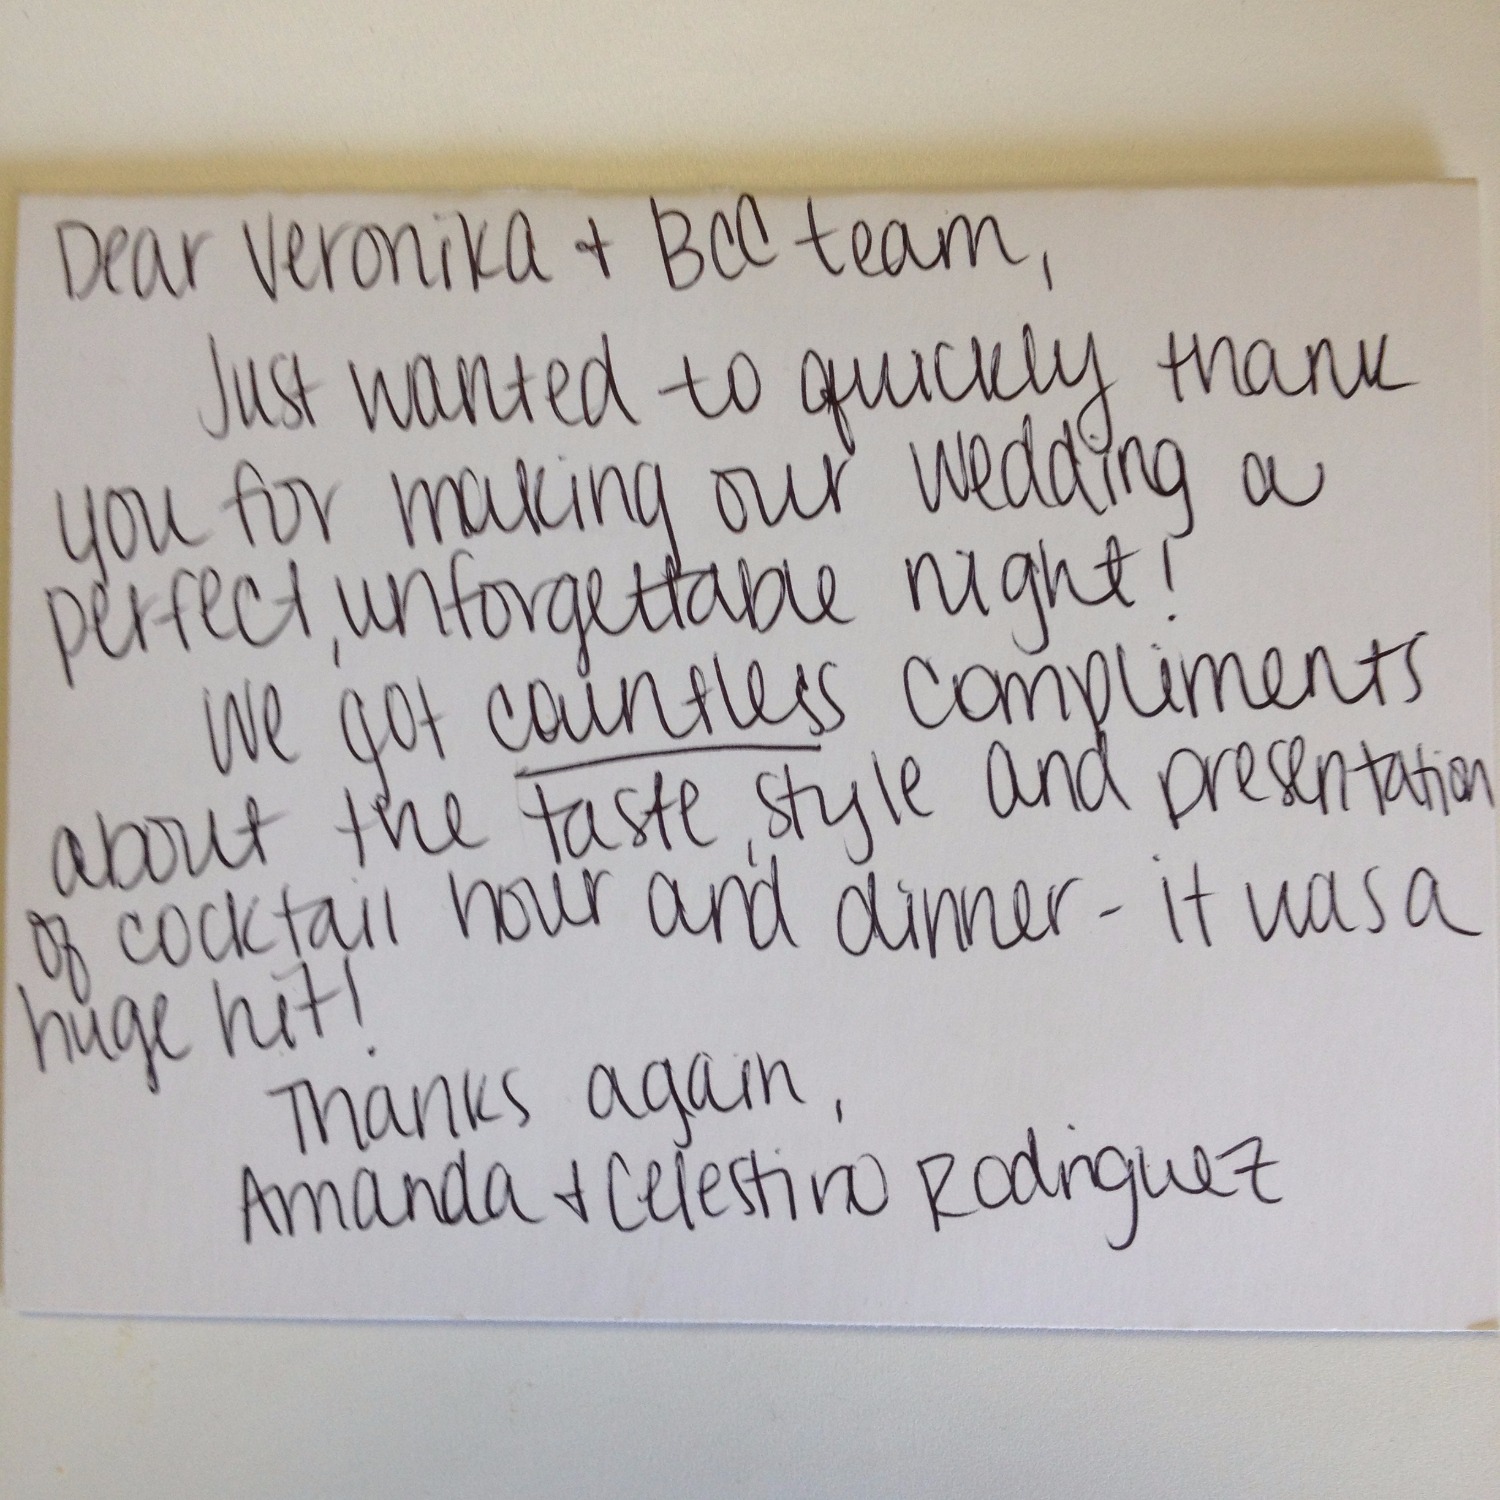 Dear Veronika + BCC team,
Just wanted to quickly thank
you for making our wedding a
perfect, unforgettable night!
We got countless compliments
about the taste, style and presentation
of cocktail hour and dinner - it was a
huge hit!
Thanks again,
Amanda + Celestino Rodriguez